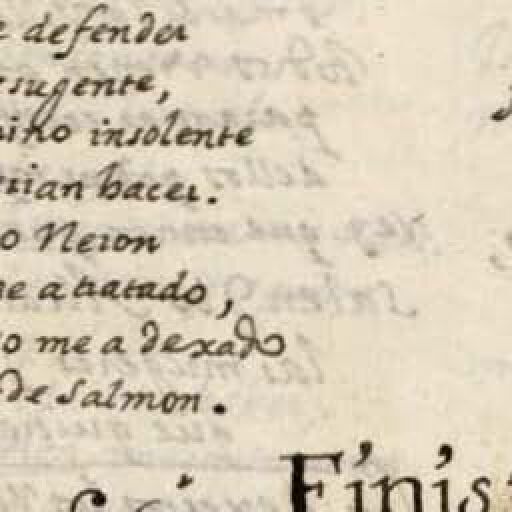 e defender
sugente,
nino insolente
rian hacer.
o Neron
me a tratado,
o me a dexado
de Salmon.
Finis